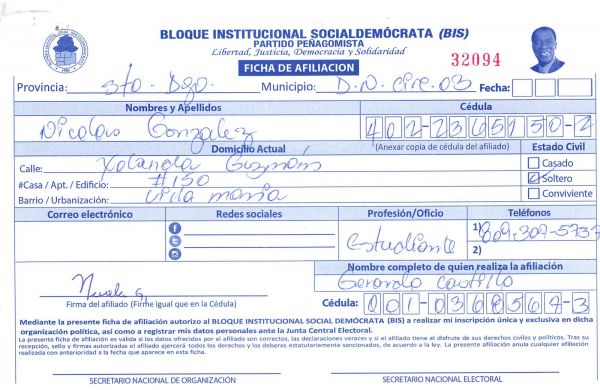 BLOQUE INSTITUCIONAL SOCIALDEMÓCRATA (BIS)
PARTIDO PEÑAGOMISTA
Libertad, Justicia, Democracia y Solidaridad
32094
FICHA DE AFILIACION
Provincia: Sto. Dgo. Municipio: D.N. Circ. 03 Fecha:
Nombres y Apellidos Cédula
Nicolas Gonzalez 402-2365130-2
Domicilio Actual (Anexar copia de cédula del afiliado) Estado Civil
Calle: Yolanda Guzmán Casado
#Casa / Apt. / Edificio: #150 Soltero
Barrio / Urbanización: Villa maria Conviviente
Correo electrónico Redes sociales Profesión/Oficio Teléfonos
Estudiante 1) 809-307-5737
2)
Nombre completo de quien realiza la afiliación
Gerardo Castillo
Firma del afiliado (Firme igual que en la Cédula) Cédula: 001-0368564-3
Mediante la presente ficha de afiliación autorizo al BLOQUE INSTITUCIONAL SOCIAL DEMÓCRATA (BIS) a realizar mi inscripción única y exclusiva en dicha
organización política, así como a registrar mis datos personales ante la Junta Central Electoral.
La presente ficha de afiliación es válida si los datos ofrecidos por el afiliado son correctos, las declaraciones veraces y si el afiliado tiene el disfrute de sus derechos civiles y políticos. Tras su
recepción, sello y firmas autorizadas el afiliado ejercerá todos los derechos y los deberes estatutariamente sancionados, de acuerdo a la ley. La presente afiliación anula cualquier afiliación
realizada con anterioridad a la fecha que aparece en esta ficha.
SECRETARIO NACIONAL DE ORGANIZACIÓN SECRETARIO NACIONAL ELECTORAL